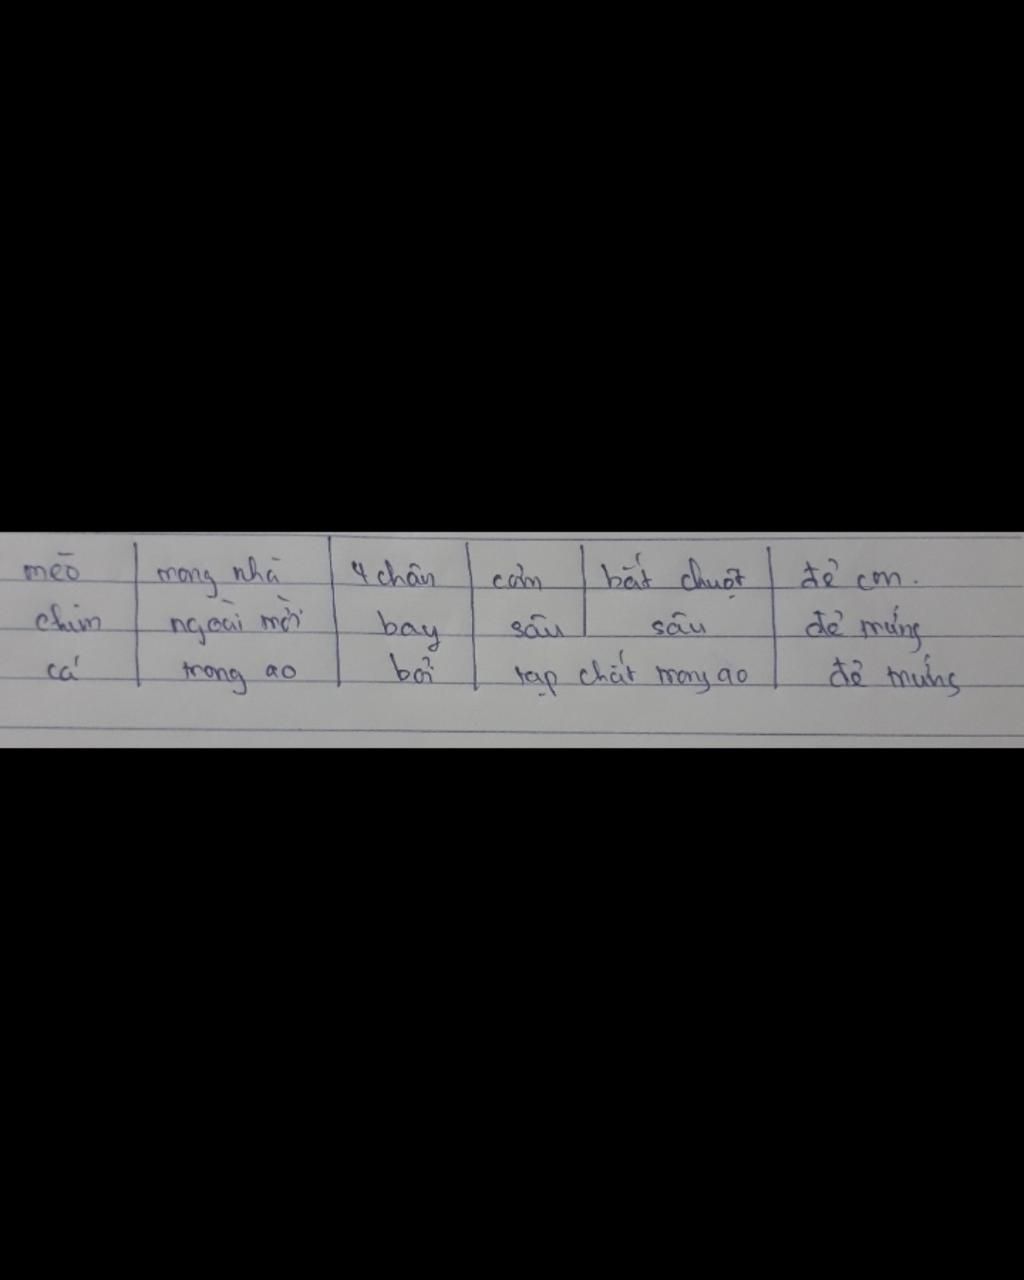 mèo trong nhà 4 chân cơm bắt chuột đẻ con.
chim ngoài trời bay sâu sâu đẻ trứng
cá trong ao bơi tạp chất trong ao đẻ trứng